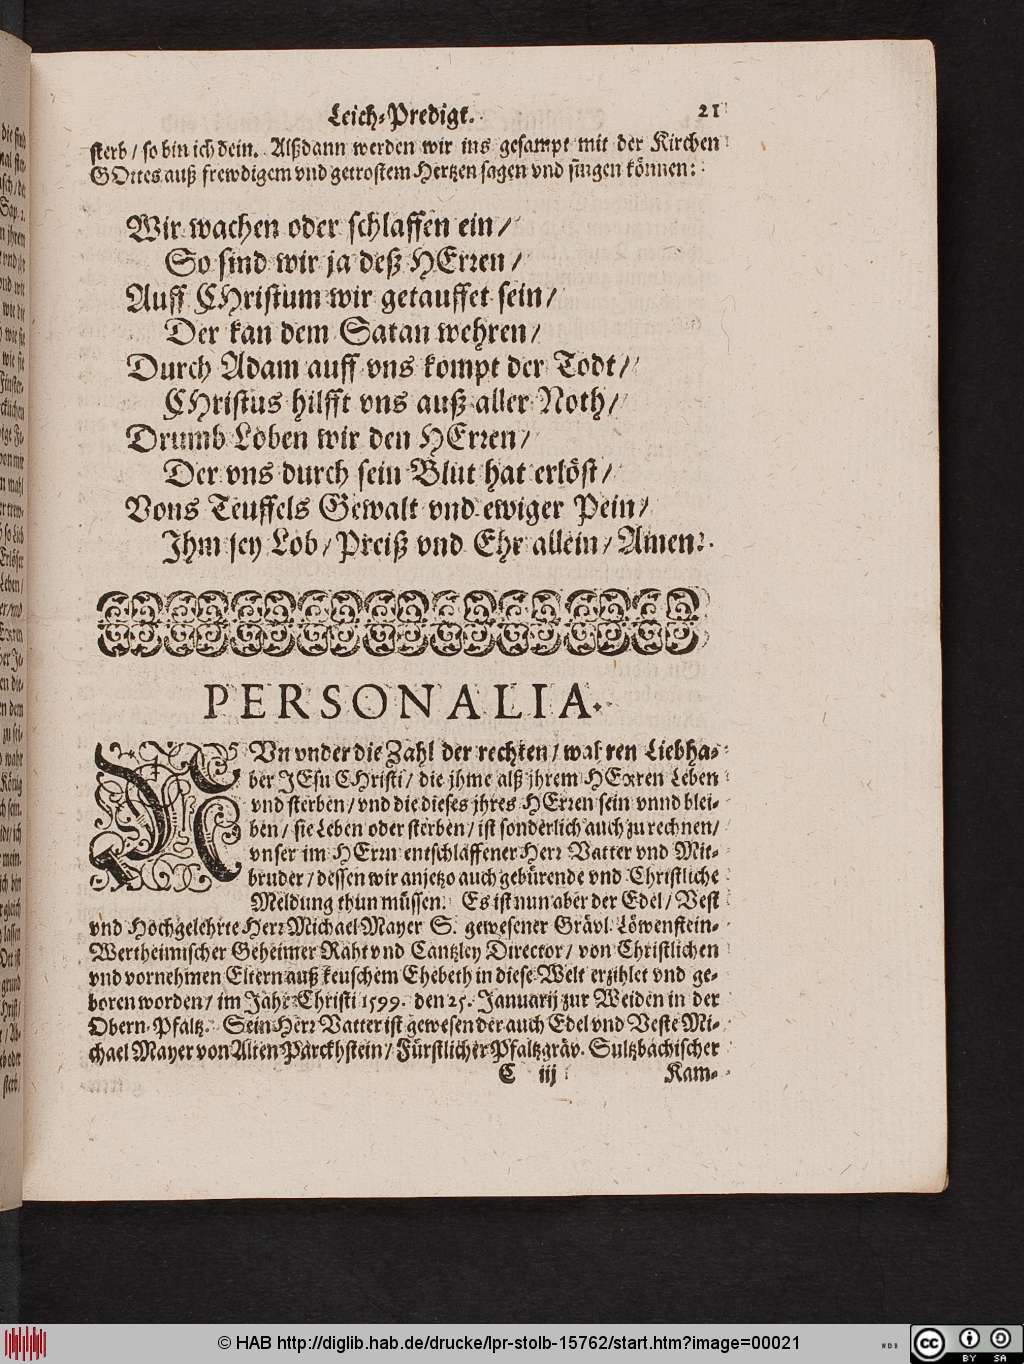 Leich-Predigt. 21
sterb / so bin ich dein. Alßdann werden wir ins gesampt mit der Kirchen
GOttes auß frewdigem vnd getrostem Hertzen sagen vnd singen können:
Wir wachen oder schlaffen ein /
So sind wir ja deß HErren /
Auff CHristum wir getauffet sein /
Der kan dem Satan wehren /
Durch Adam auff vns kompt der Todt /
CHristus hilfft vns auß aller Noth /
Drumb Loben wir den HErren /
Der vns durch sein Blut hat erlöst /
Vons Teuffels Gewalt vnd ewiger Pein /
Ihm sey Lob / Preiß vnd Ehr allein / Amen.
PERSONALIA.
NVn vnder die Zahl der rechten / wahren Liebha-
ber JEsu CHristi / die jhme alß jhrem HErren Leben
vnd sterben / vnd die dieses jhres HErren sein vnnd blei-
ben / sie Leben oder sterben / ist sonderlich auch zu rechnen /
vnser im HErrn entschlaffener Herr Vatter vnd Mit-
bruder / dessen wir anjetzo auch gebürende vnd Christliche
Meldung thun müssen. Es ist nun aber der Edel / Vest
vnd Hochgelehrte Herr Michael Mayer S. gewesener Grävl. Löwenstein-
Wertheimischer Geheimer Raht vnd Cantzley Director / von Christlichen
vnd vornehmen Eltern auß keuschem Ehebeth in diese Welt erzihlet vnd ge-
boren worden / im Jahr Christi 1599. den 25. Januarij zur Weiden in der
Obern-Pfaltz. Sein Herr Vatter ist gewesen der auch Edel vnd Veste Mi-
chael Mayer von Alten Parckhstein / Fürstlicher Pfaltzgräv. Sultzbachischer
C iij Kam-
© HAB http://diglib.hab.de/drucke/lpr-stolb-15762/start.htm?image=00021
WDB
cc BY SA